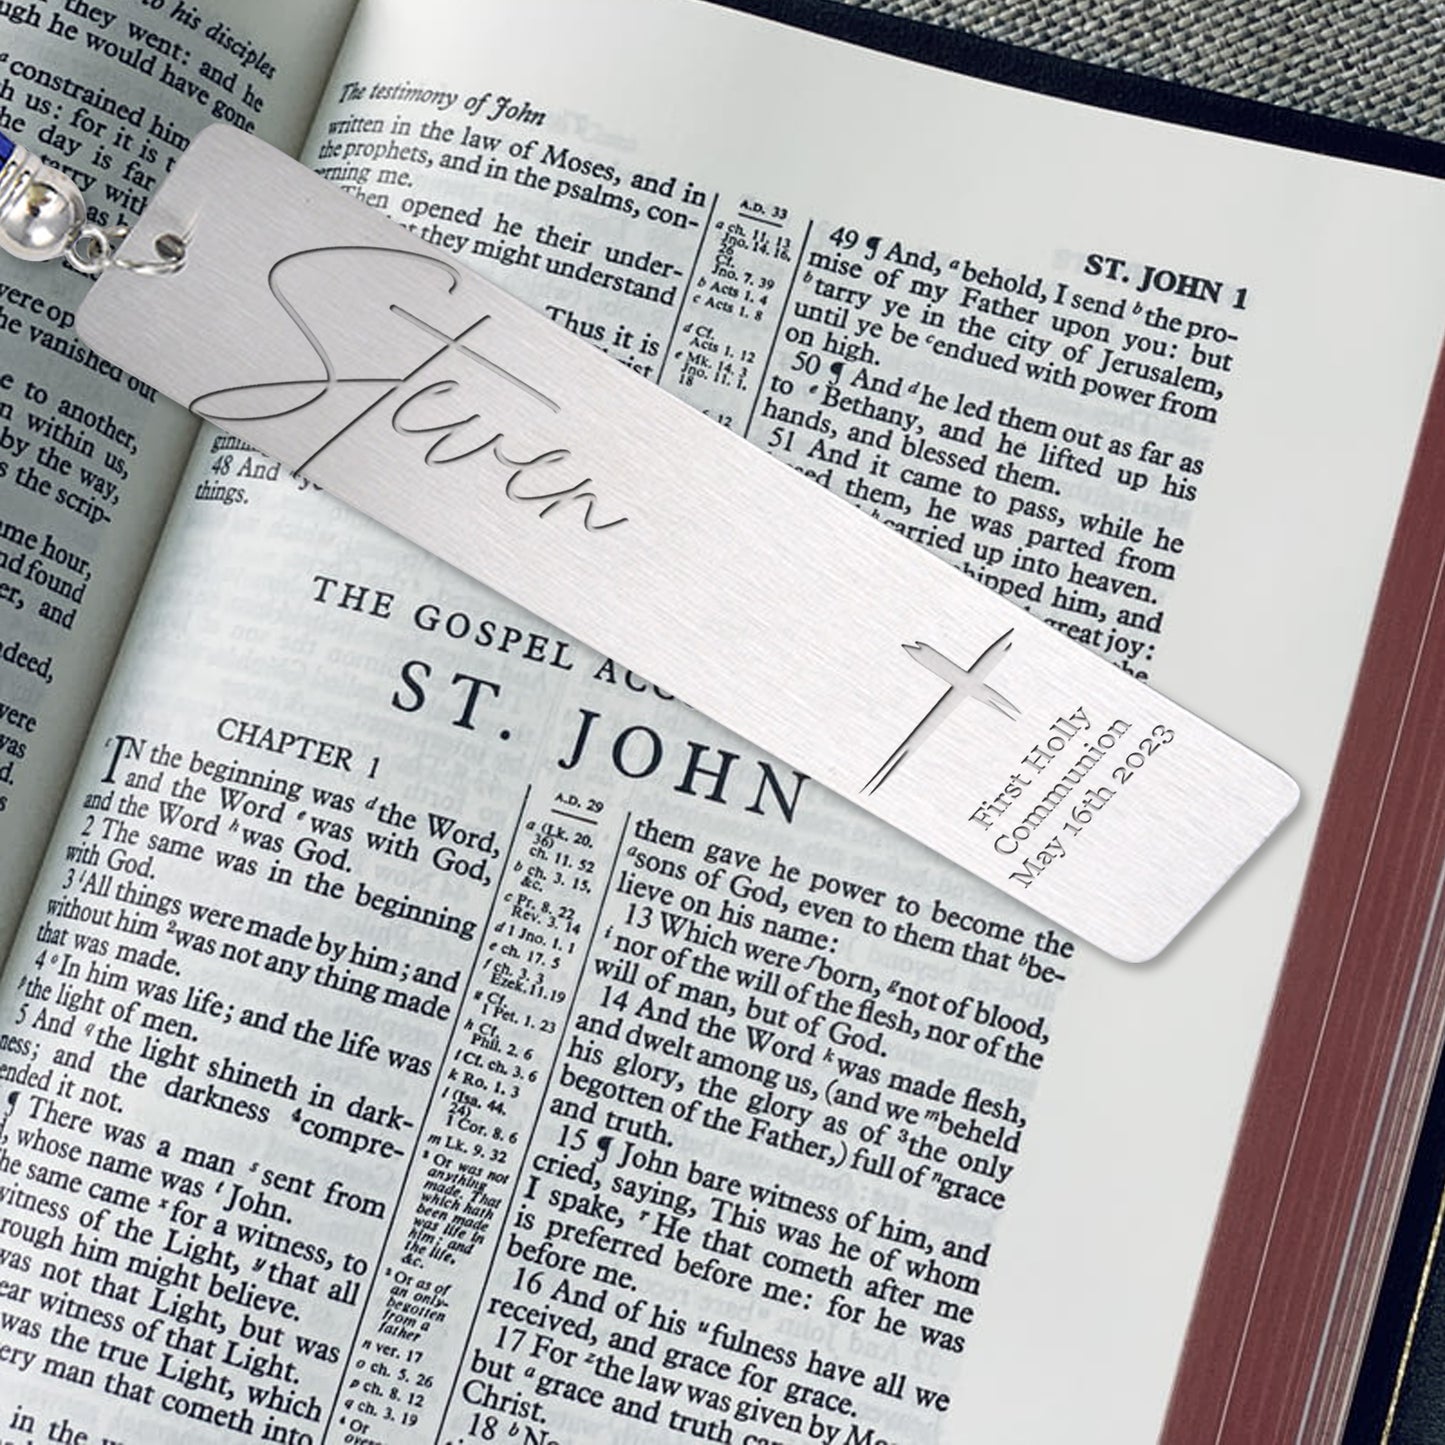 to his disciples
they went: and he
ugh he would have gone
constrained him
h us: for it is
he day is far
tarry with
as
were op
he vanished out
e to another,
n within us,
by the way,
s the scrip-
me hour,
nd found
er, and
ndeed,
were
was
d.
The testimony of John
written in the law of Moses, and in
the prophets, and in the psalms, con-
erning me.
Then opened he their under-
they might understand
Thus it is
48 And
things.
A.D. 33
a ch. 11. 13
Jno. 14. 16,
26
Cf.
Jno. 7. 39
b Acts 1. 4
c Acts 1. 8
d Cf.
Acts 1. 12
e Mk. 14. 3
Jno. 11. 1,
18
ST. JOHN 1
49 ¶ And, a behold, I send b the pro-
mise of my Father upon you: but
b tarry ye in the city of Jerusalem,
until ye be c endued with power from
on high.
50 ¶ And d he led them out as far as
to e Bethany, and he lifted up his
hands, and blessed them.
51 And it came to pass, while he
them, he was parted from
h carried up into heaven.
him, and
great joy:
the
Steven
First Holly
Communion
May 16th 2023
THE GOSPEL
ST. JOHN
CHAPTER 1
IN the beginning was d the Word,
and the Word e was with God,
and the Word h was God.
2 The same was in the beginning
with God.
3 i All things were made by him; and
without him 2 was not any thing made
that was made.
4 o In him was life; and the life was
p the light of men.
5 And q the light shineth in dark-
ness; and the darkness 4 compre-
ended it not.
¶ There was a man s sent from
, whose name was t John.
he same came x for a witness, to
witness of the Light, y that all
rough him might believe.
was not that Light, but was
ear witness of that Light.
was the true Light, which
ery man that cometh into
in the
A.D. 29
a (Lk. 20.
36)
ch. 11. 52
b ch. 3. 15,
&c.
c Pr. 8. 22
Rev. 3. 14
d 1 Jno. 1. 1
e ch. 17. 5
f ch. 3. 3
Ezek. 11. 19
g Cf.
1 Pet. 1. 23
h Cf.
Phil. 2. 6
i Cf. ch. 3. 6
k Ro. 1. 3
l (Isa. 44.
24)
1 Cor. 8. 6
m Lk. 9. 32
2 Or was not
anything
made. That
which hath
been made
was life in
him; and
the life,
&c.
3 Or as of
an only-
begotten
from a
father
n ver. 17
o ch. 5. 26
p ch. 8. 12
q ch. 3. 19
4 Or
them gave he power to become the
a sons of God, even to them that b be-
lieve on his name:
13 Which were f born, g not of blood,
i nor of the will of the flesh, nor of the
will of man, but of God.
14 And the Word k was made flesh,
and dwelt among us, (and we m beheld
his glory, the glory as of 3 the only
begotten of the Father,) full of n grace
and truth.
15 ¶ John bare witness of him, and
cried, saying, This was he of whom
I spake, r He that cometh after me
is preferred before me: for he was
before me.
16 And of his u fulness have all we
received, and grace for grace.
17 For z the law was given by Mo
but a grace and truth
Christ.
18 b No